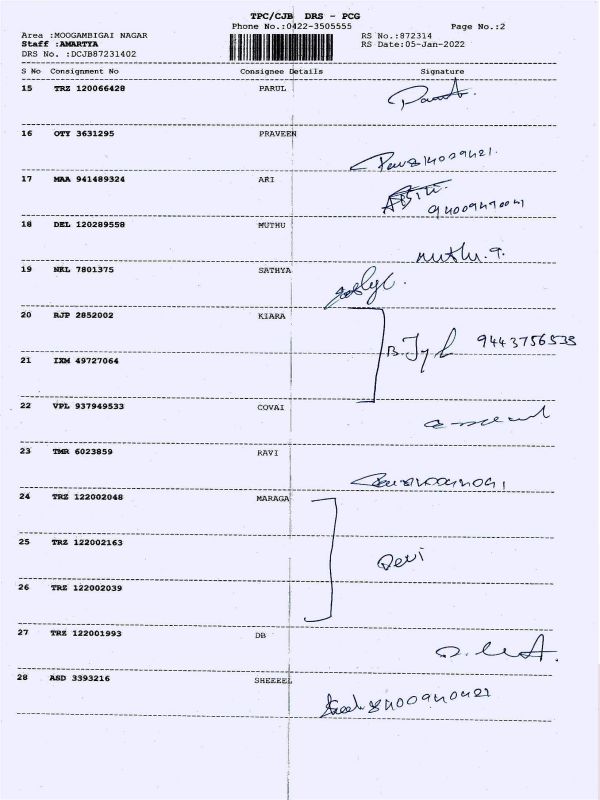 TPC/CJB DRS - PCG
Phone No.:0422-3505555 Page No.:2
Area :MOOGAMBIGAI NAGAR RS No.:872314
Staff :AMARTYA RS Date:05-Jan-2022
DRS No. :DCJB87231402
S No Consignment No Consignee Details Signature
15 TRZ 120066428 PARUL
16 OTY 3631295 PRAVEEN
17 MAA 941489324 ARI
18 DEL 120289558 MUTHU
muthu.
19 NKL 7801375 SATHYA
20 RJP 2852002 KIARA
9443756535
21 IXM 49727064
22 VPL 937949533 COVAI
23 TMR 6023859 RAVI
24 TRZ 122002048 MARAGA
25 TRZ 122002163
Devi
26 TRZ 122002039
27 TRZ 122001993 DB
28 ASD 3393216 SHEEEEL